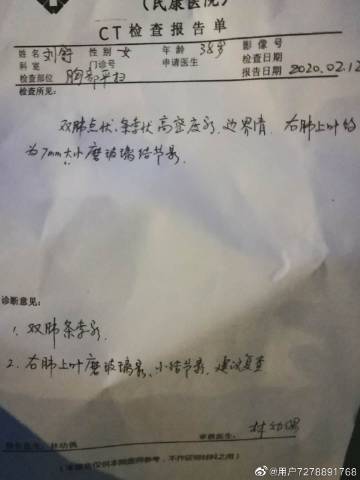 (民康医院)
CT 检查报告单
姓名 刘舒 性别 女 年龄 38岁 影像号
科室 门诊号 申请医生 检查日期
检查部位 胸部平扫 报告日期 2020.02.12
检查所见:
双肺点状、条索状高密度影,边界清,右肺上叶约
为7mm大小磨玻璃结节影
诊断意见:
1、双肺条索影
2、右肺上叶磨玻璃影、小结节影,建议复查
报告医生:林幼偶 审核医生: 林幼偶
(本报告仅供本院医师参考,不作证明材料之用)
@用户7278891768